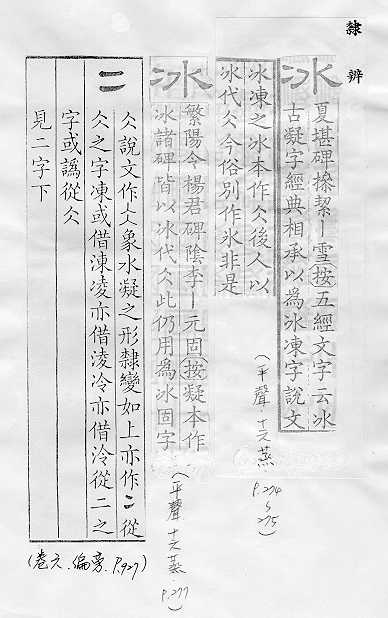 隸辨
冰
夏堪碑㨿絜ー雪按五經文字云冰
古凝字經典相承以為冰凍字說文
冰凍之冰本作仌後人以
冰代仌今俗別作氷非是
(平聲.十六蒸 P.274 S 275)
冰
繁陽令楊君碑陰李ー元固按凝本作
冰諸碑皆以冰代仌此仍用為冰固字
(平聲.十六蒸.P.277)
二
仌說文作仌象水凝之形隸變如上亦作冫從
仌之字凍或借涷凌亦借淩冷亦借泠從二之
字或譌從仌
見二字下
(卷六.偏旁.P.927)